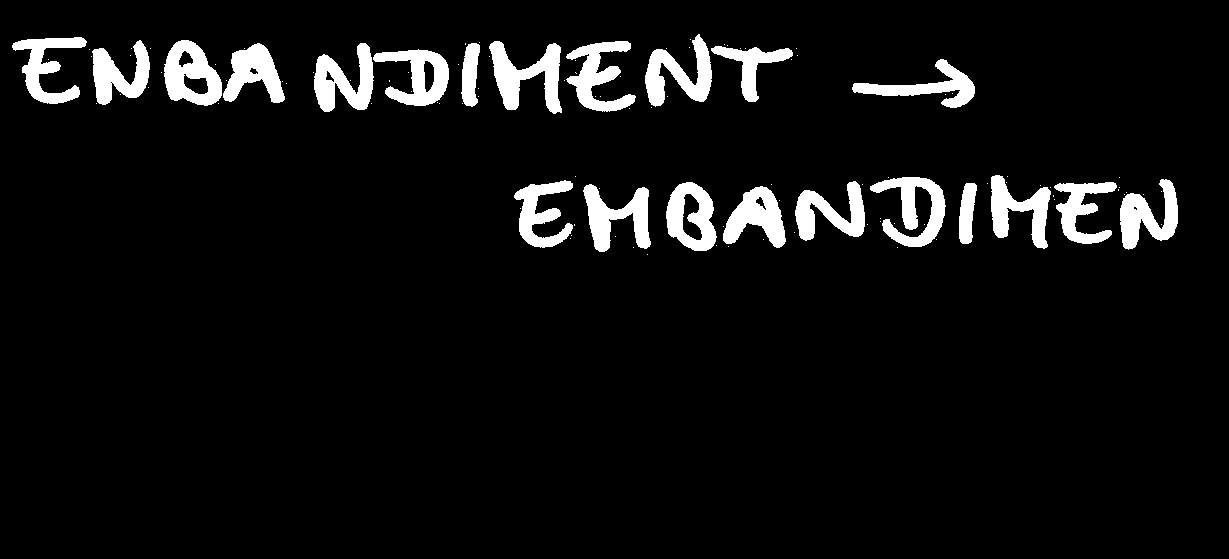 ENBANDIMENT →
EMBANDIMEN